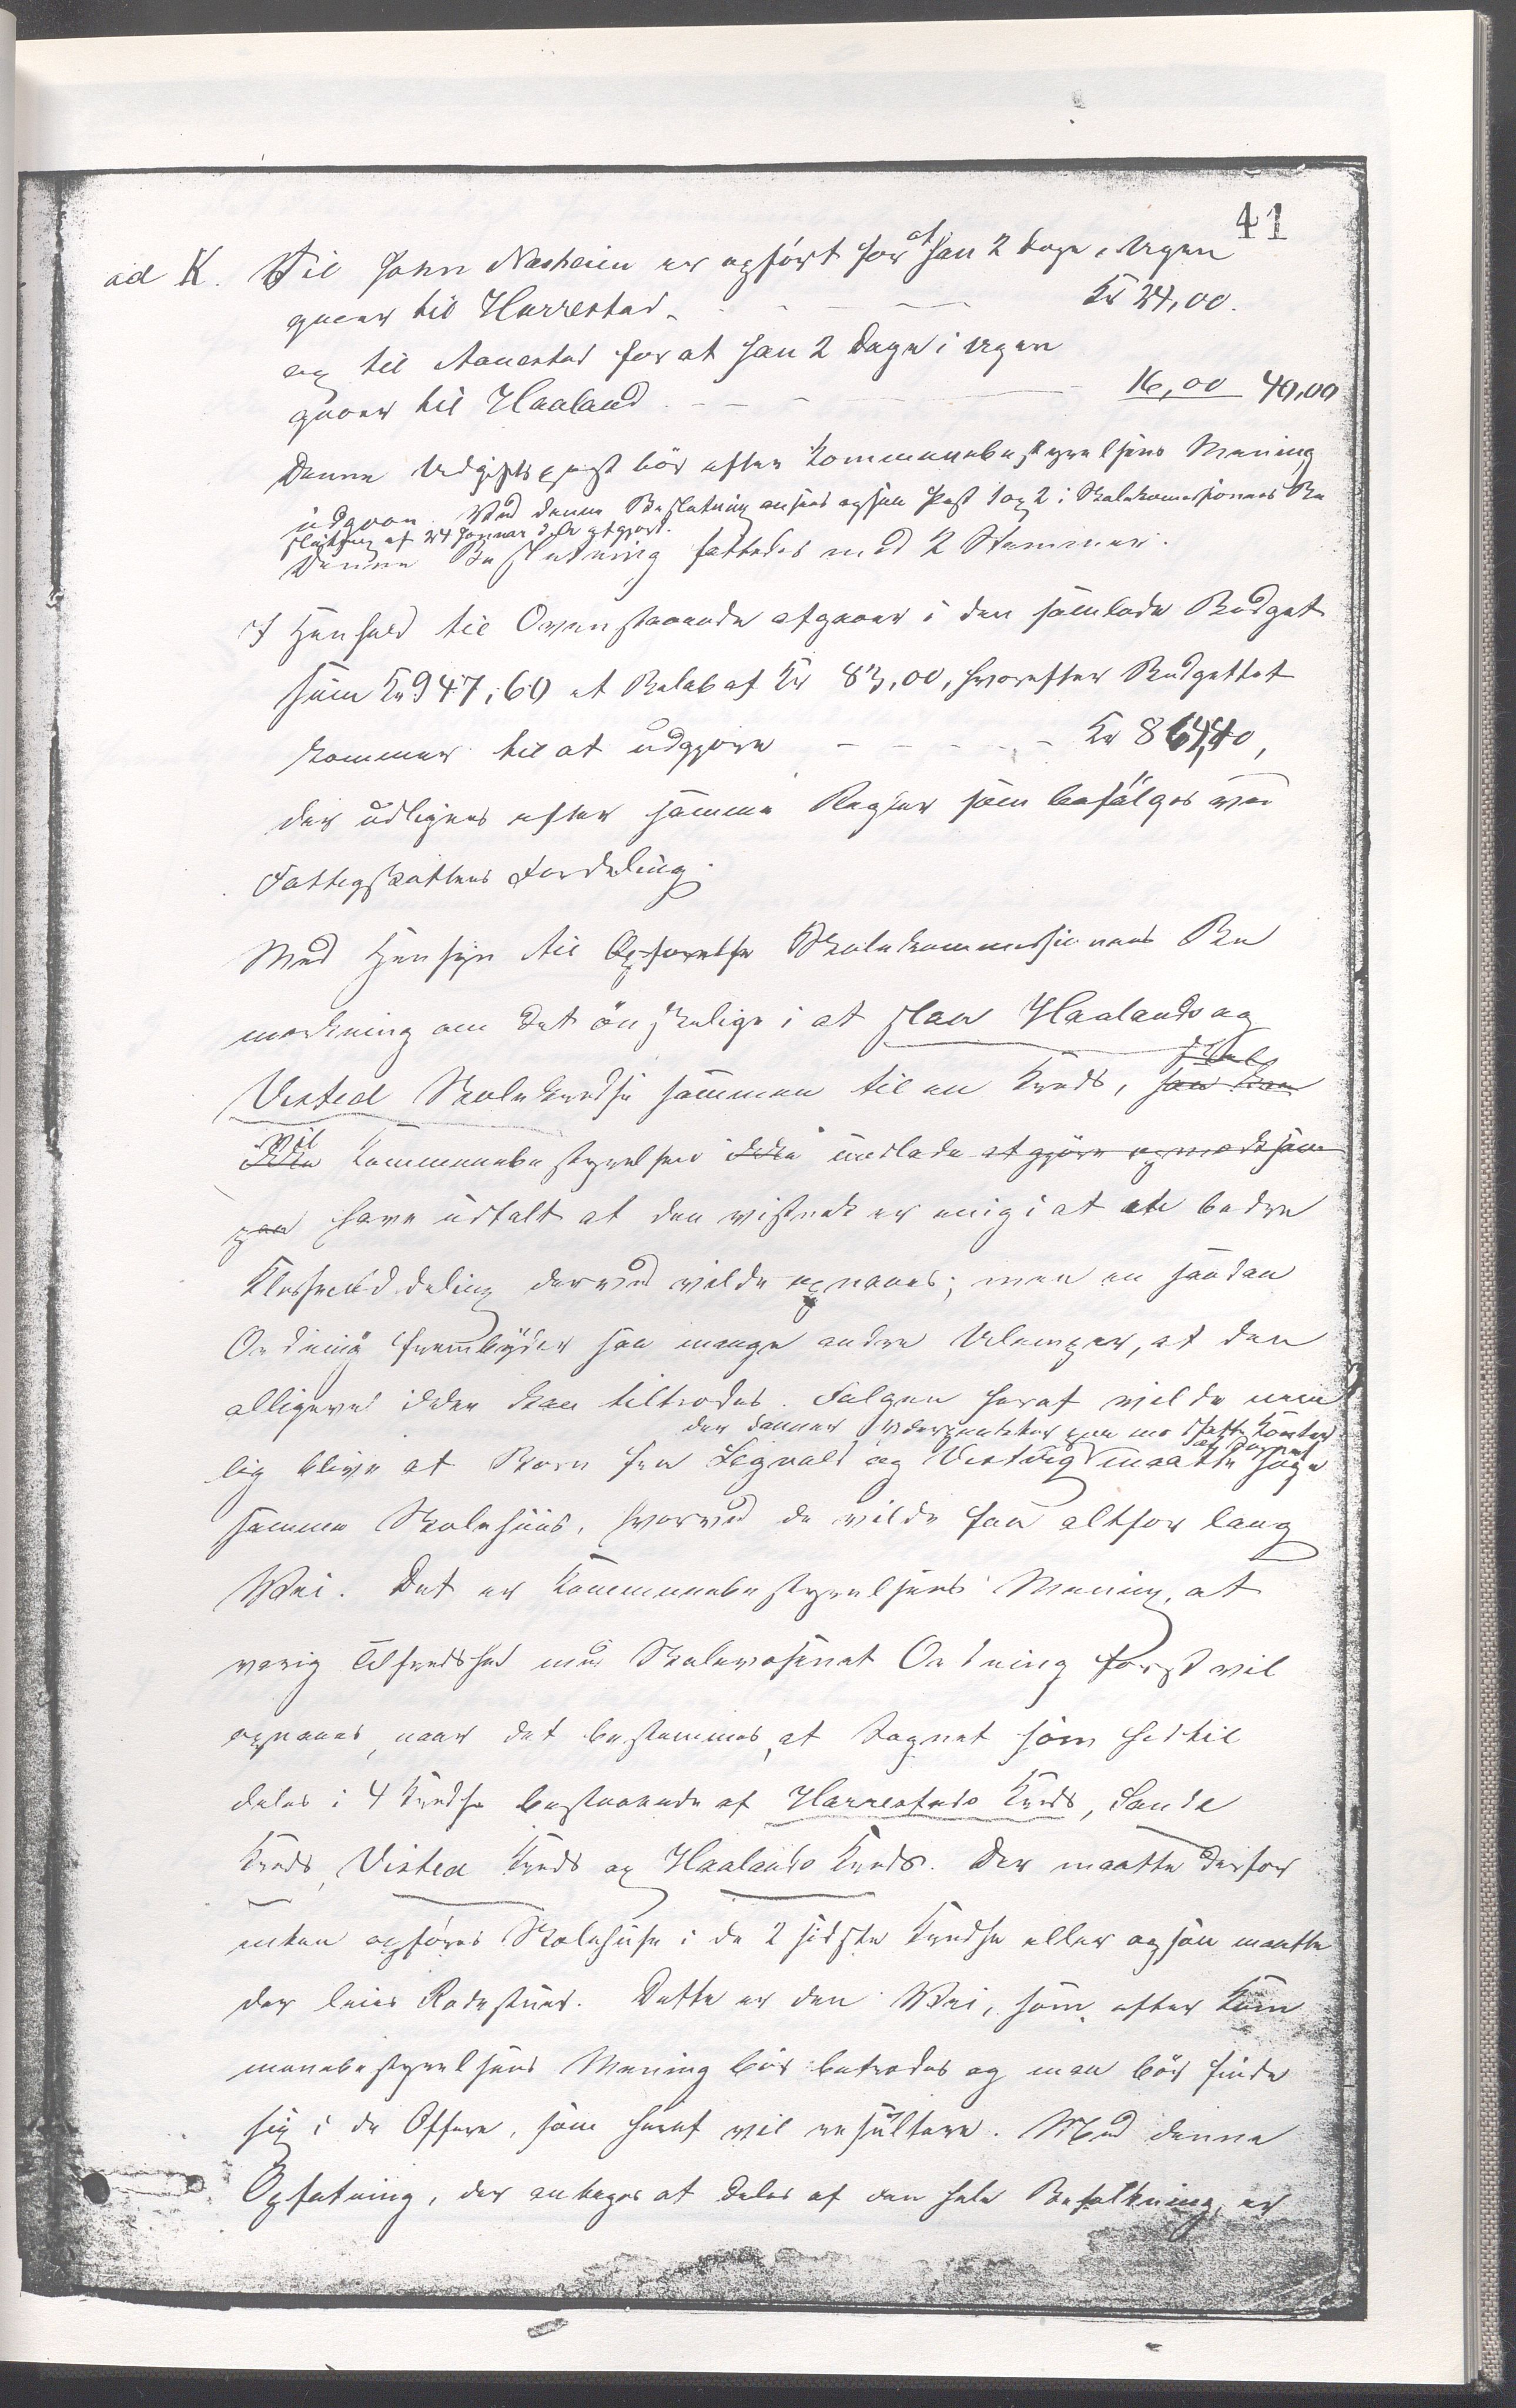 41
ad K. Til John Nasheim er opført for at han 2 Dage i Ugen
gaaer til Harrestad. - - - Kr 24,00.
og til Aanestad for at han 2 Dage i Ugen
gaaer til Haaland - - - - 16,00 40,00
Denne Udgiftspost bör efter Kommunebestyrelsens Mening
udgaa. Ved denne Beslutning ansees ogsaa Post 1 og 2 i Skolekomissionens Be
slutning af 24 Januar d.A. afgjort.
Denne Beslutning fattedes med 2 Stemmer.
I Henhold til Ovenstaaende afgaaer i den samlede Budget
sum Kr 947,60 et Beløb af Kr 83,00, hvorefter Budgettet
kommer til at udgjøre - - - - - Kr 864,40,
der udlignes efter samme Regler som befølges ved
Fattigskattens Fordeling.
Med Hensyn til Opførelse Skolekommissionens Be
mærkning om det ønskelige i at slaa Haalands og
Visted Skolekredse sammen til en Kreds, skal
saa kan
vil
ikke Kommunebestyrelsen ikke undlade at gjøre opmærksom
paa have udtalt at den vistnok er enig i at en bedre
Klasseinddeling derved vilde opnaaes; men en saadan
Ordning frembyder saa mange andre Ulemper, at den
alligevel ikke kan tiltrædes. Følgen heraf vilde nem
der danner Yderpunkter paa
lig blive at Børn fra Signald og Vestvig maatte søge
samme Skolehuus, hvorved de vilde faa altfor lang
Vei. Det er Kommunebestyrelsens Mening, at
varig Tilfredshed med Skolevæsenet Ordning først vil
opnaaes, naar det bestemmes, at Sognet som hidtil
deles i 4 Kredse bestaaende af Harrestads Kreds, Sande
Kreds, Visted Kreds og Haalands Kreds. Der maatte derfor
enten opføres Skolehuse i de 2 sidste Kredse eller ogsaa maatte
der leies Rodestuer. Dette er den Vei, som efter Kom
munebestyrelsens Mening bör betrædes og man bör finde
sig i de Offere, som heraf vil resultere. Med denne
Opfatning, der antages at deles af den hele Befolkning, er